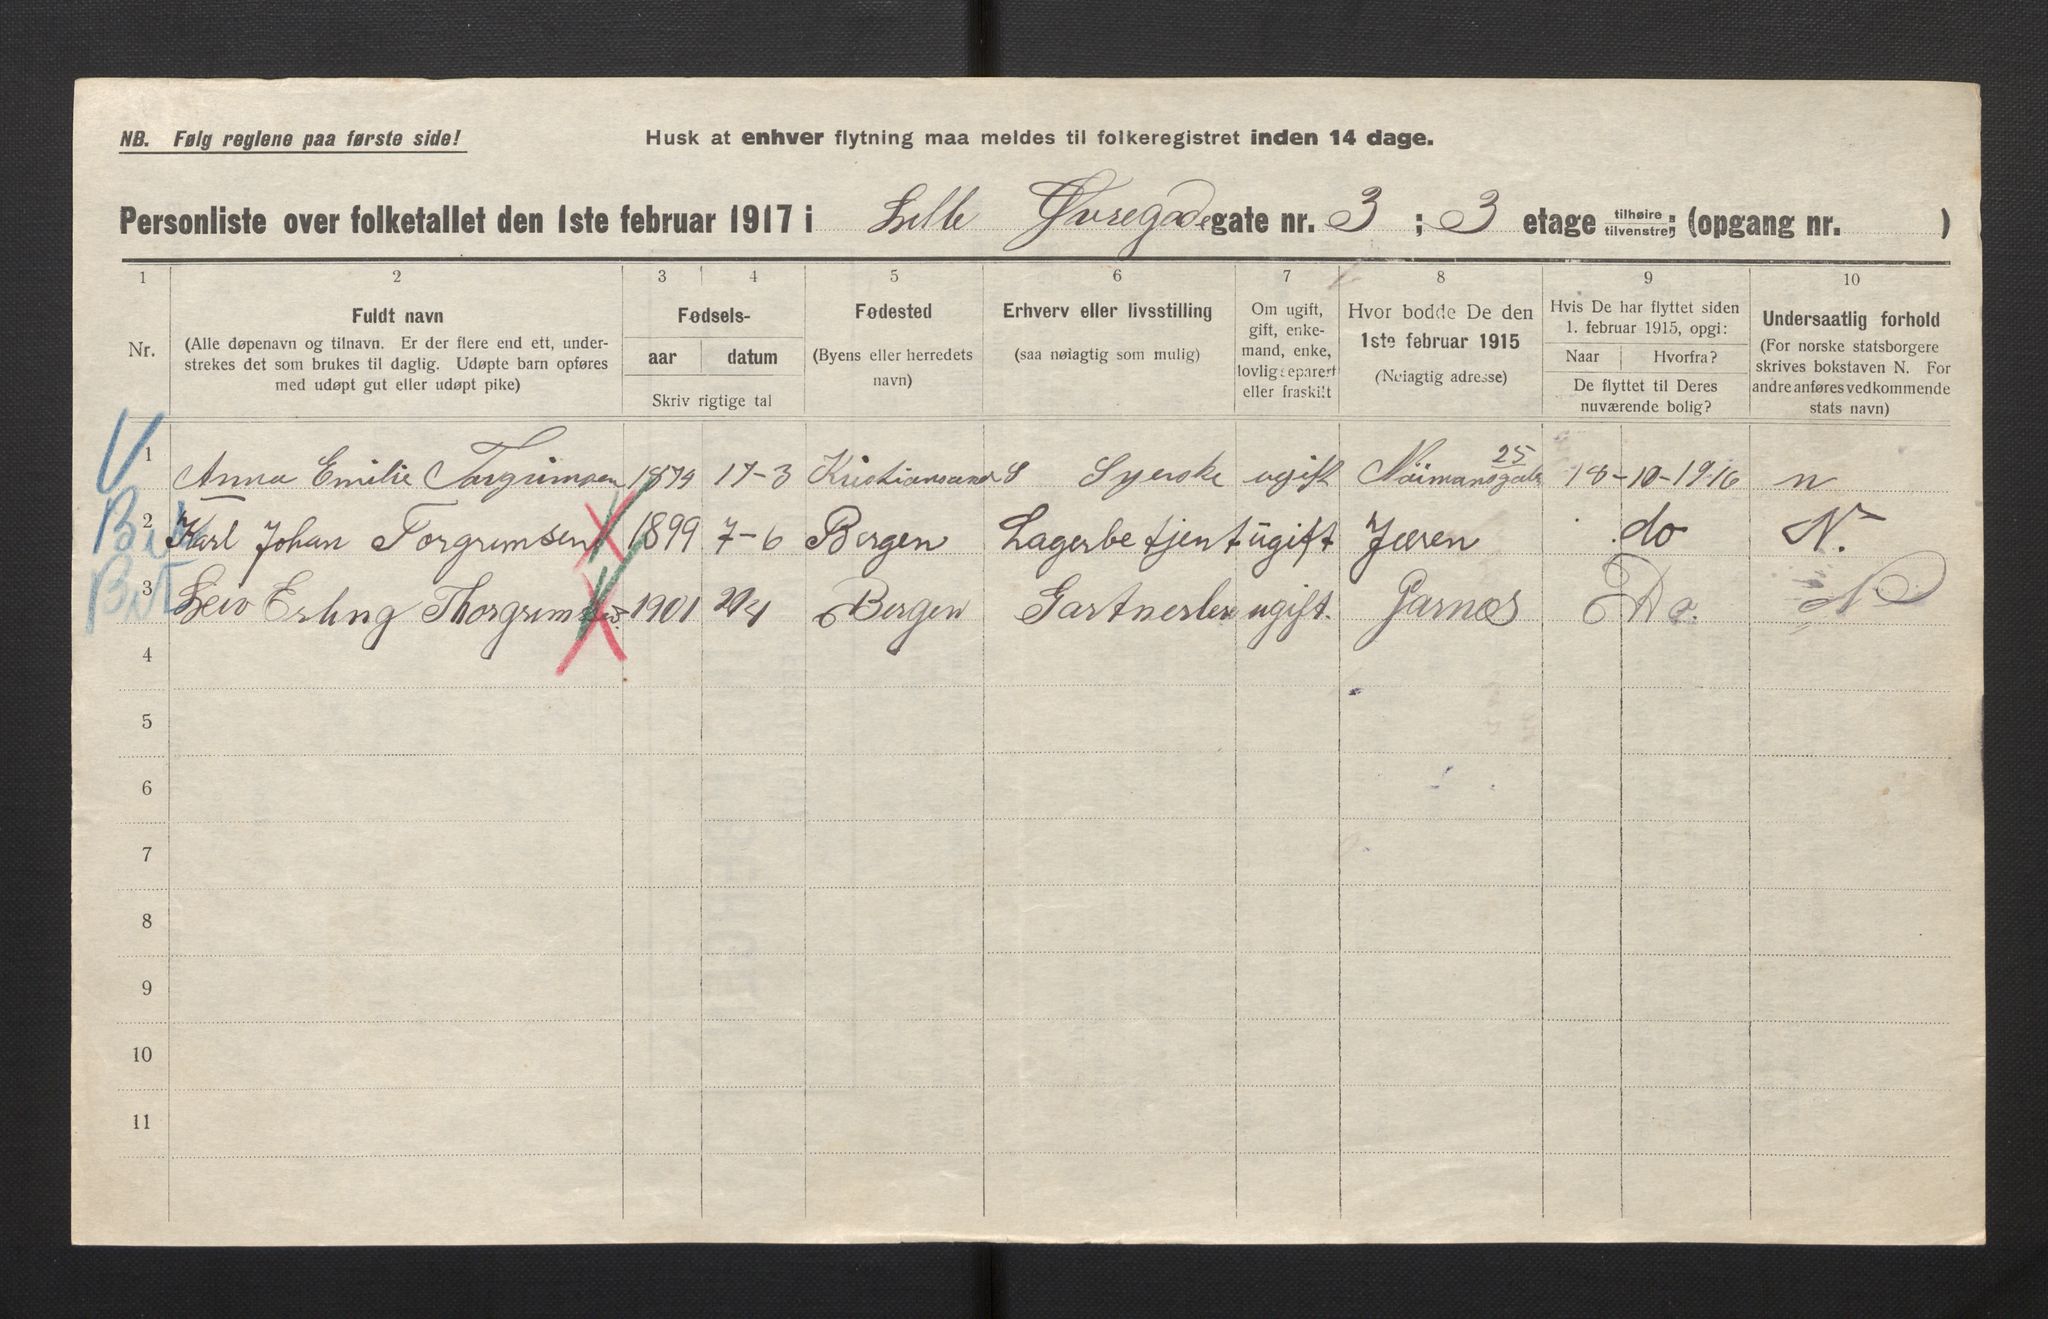 NB. Følg reglene paa første side!
Husk at enhver flytning maa meldes til folkeregistret inden 14 dage.
Personliste over folketallet den 1ste februar 1917 i Lille Øvregade gate nr. 3 ; 3 etage tilhøire tilvenstre ; (opgang nr. )
1 2 3 4 5 6 7 8 9 10
Nr.
Fuldt navn
(Alle døpenavn og tilnavn. Er der flere end ett, under-
strekes det som brukes til daglig. Udøpte barn opføres
med udøpt gut eller udøpt pike)
Fødsels-
aar datum
Skriv rigtige tal
Fødested
(Byens eller herredets
navn)
Erhverv eller livsstilling
(saa nøiagtig som mulig)
Om ugift,
gift, enke-
mand, enke,
lovlig separert
eller fraskilt
Hvor bodde De den
1ste februar 1915
(Nøiagtig adresse)
Hvis De har flyttet siden
1. februar 1915, opgi:
Naar Hvorfra?
De flyttet til Deres
nuværende bolig?
Undersaatlig forhold
(For norske statsborgere
skrives bokstaven N. For
andre anføres vedkommende
stats navn)
1 Anna Emilie Torgrimsen 1874 17-3 Kristiansand S Syerske ugift 25 18-10-1916 n
2 Karl Johan Torgrimsen 1899 7-6 Bergen Lagerbetjent ugift Jæren do N.
3 Leiv Erling Thorgrimsen 1901 Bergen Gartnerlær ugift. Garnes Do. N
4
5
6
7
8
9
10
11